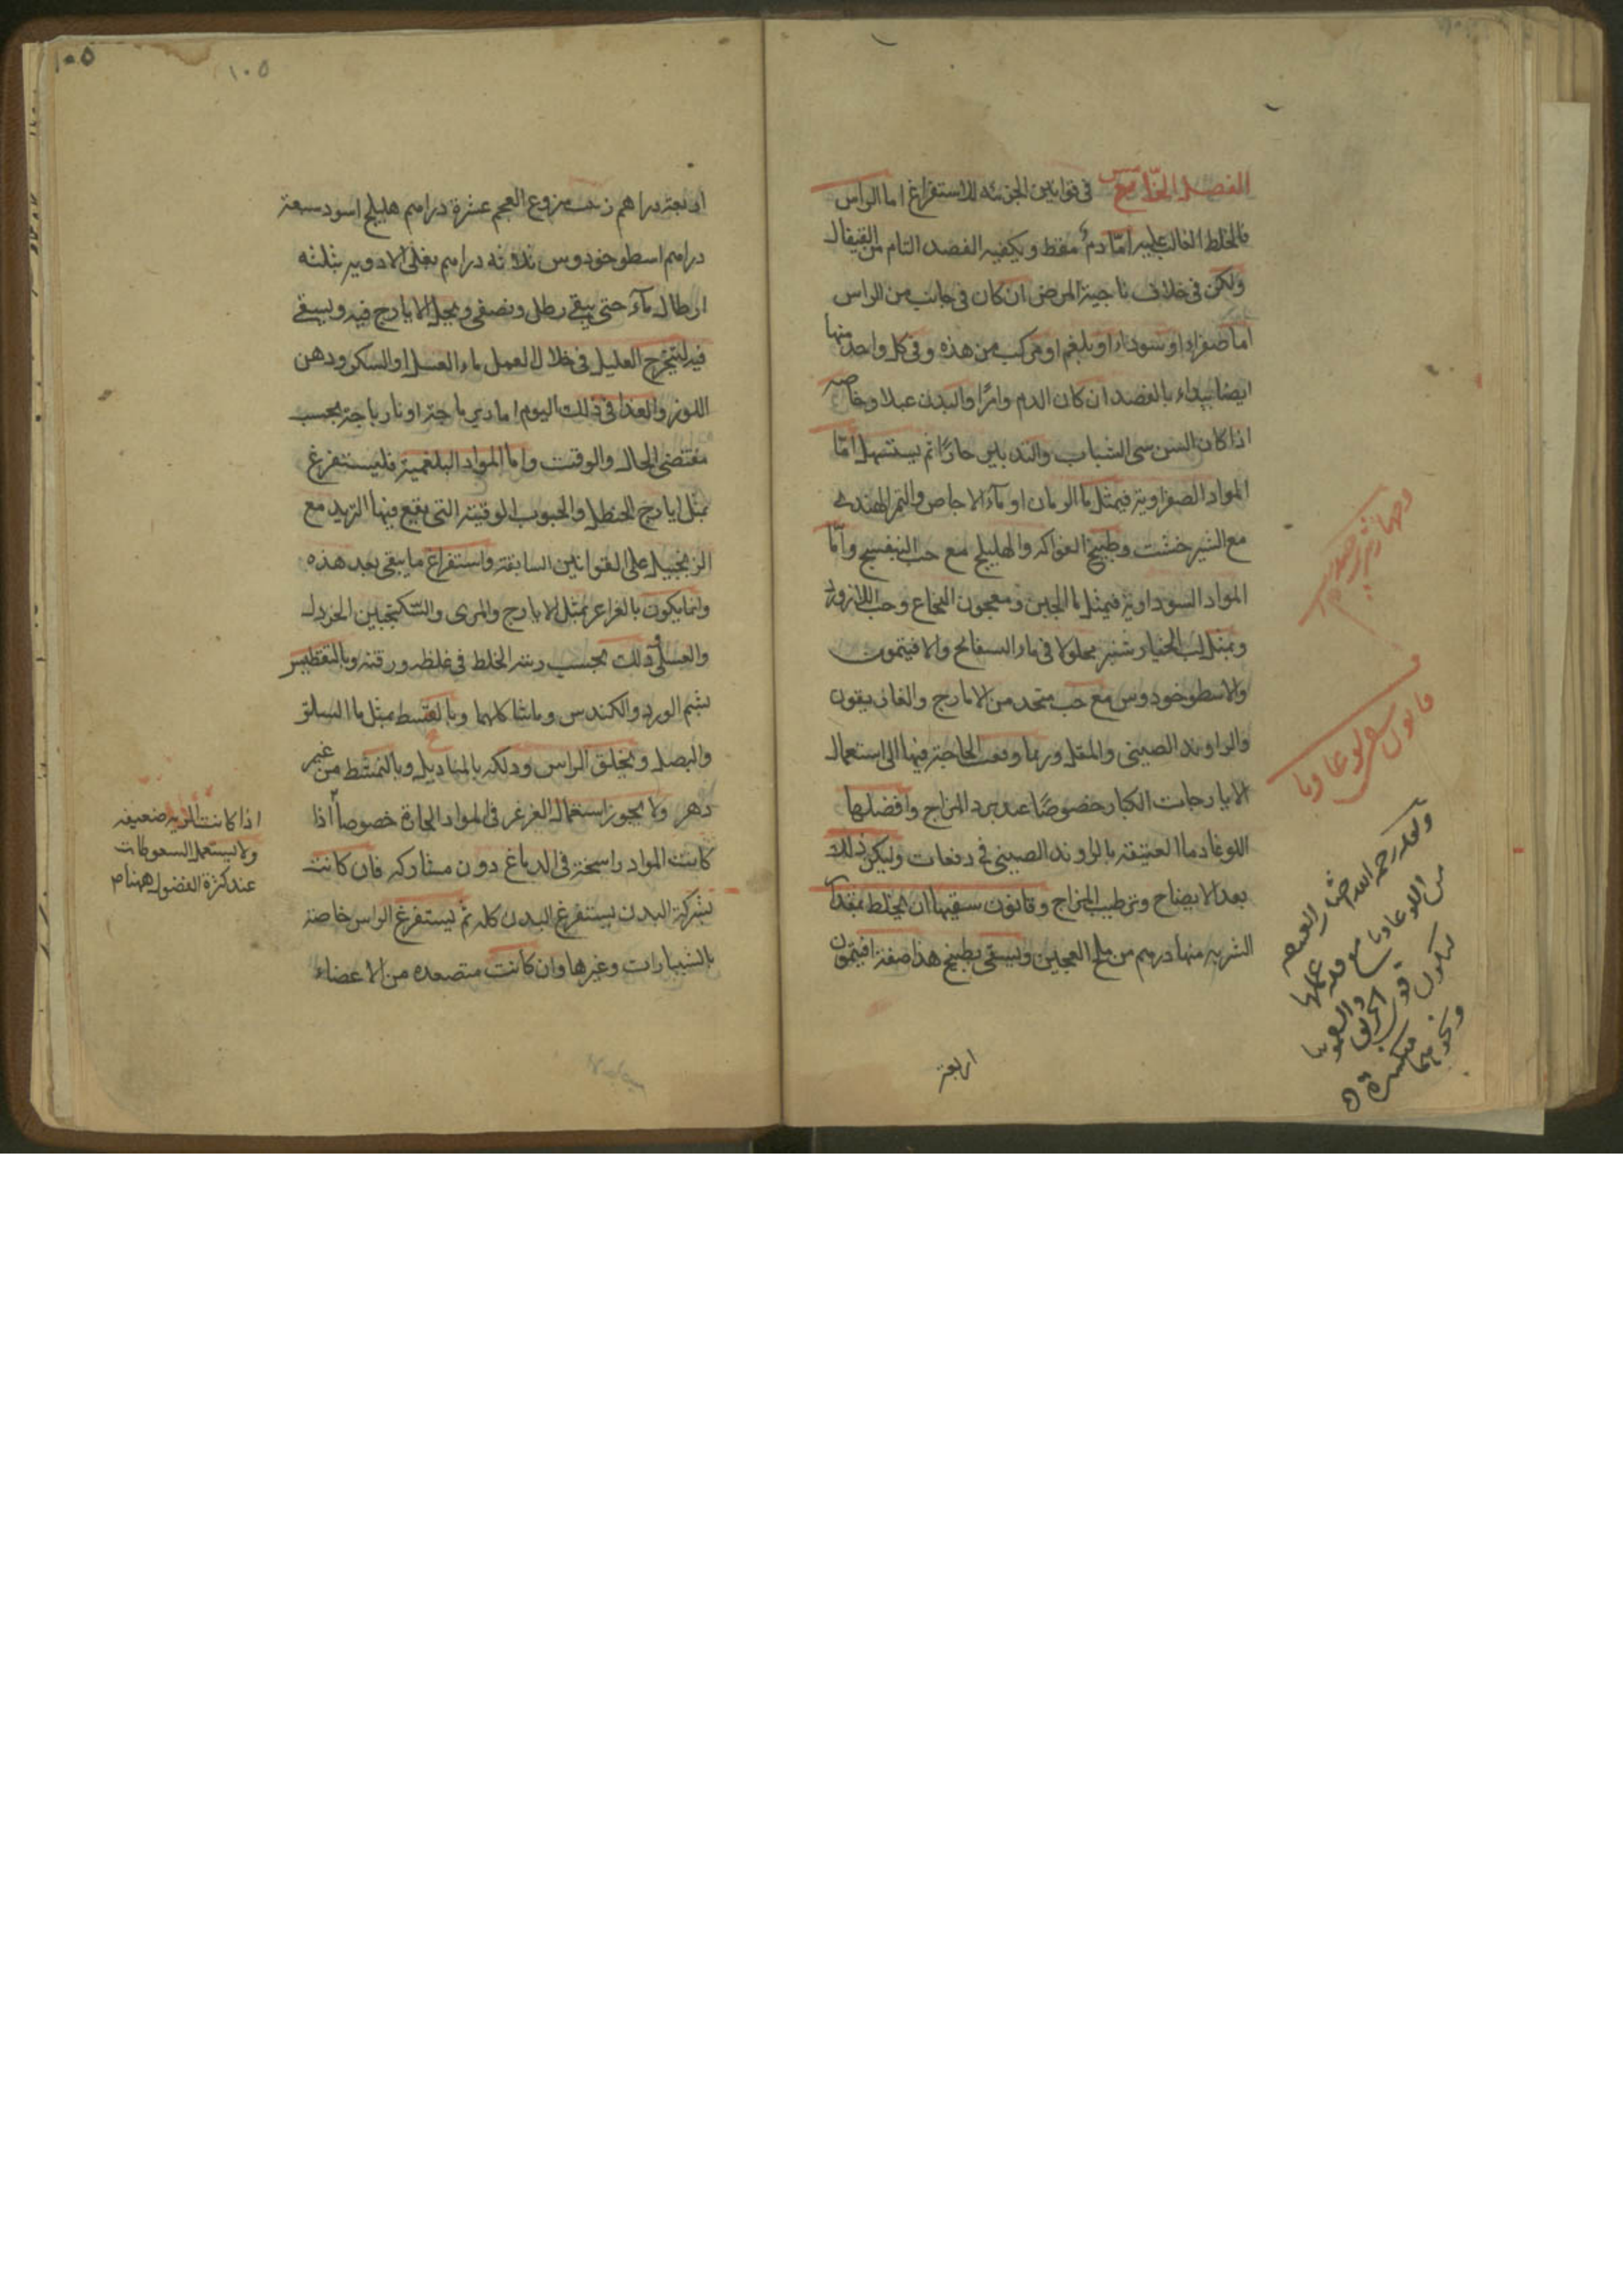 الفصل الخامس في قوانين الجزئية للاستفراغ اما الراس
فالخلط الغالب عليه امّا دم فقط ويكفيه الفصد التام من القيفال
ولكن في خلاف ناحية المرض ان كان في جانب من الراس
اما صفراء او سوداء او بلغم او مركب من هذه وفي كل واحد منها
ايضا يبداء بالفصد ان كان الدم وافرًا والبدن عبلا وخاصه
اذا كان السن سن الشباب والتدبير حارًا ثم يستسهل امّا
المواد الصفراوية فبمثل ماء الرمان او ماء الاجاص والتمر الهندي
مع الشيرخشت وطبيخ الفواكه والهليلج مع حب البنفسج وامّا
المواد السوداوية فبمثل ماء الجبن ومعجون النجاح وحب اللازورد
وبمثل لب الخيارشنبر محلولا في ماء السفايج والافيتمون
والاسطوخودوس مع حب متخذ من الايارج والغاريقون
والراوند الصيني والمقل وربما وقعت الحاجة فيها الى استعمال
الايارجات الكبار خصوصًا عند برد المزاج وافضلها
اللوغاديا العتيقة بالروند الصيني في دفعات وليكن ذلك
بعد الايضاح وترطيب المزاج وقانون سقيها ان يخلط بمقدار
الشربه منها درهم من ملح العجين ويسقى بطبيخ هذا صفته افيتمون
اربعة
قانون سقي لوغاديا
١٠٥
١٠٥
اربعة دراهم زبيب منزوع العجم عشرة دراهم هليلج اسود سبعة
دراهم اسطوخودوس ثلاثه دراهم يغلى الادويه بثلثه
ارطال ماء حتى يبقى رطل ويصفى ويجعل الايارج فيه ويسقى
فيه ليتجرع العليل في خلال العمل ماء العسل او السكر ودهن
اللوز والغذا في ذلك اليوم اما ديرباجة او نارباجة بحسب
مقتضى الحال والوقت واما المواد البلغمية فليستفرغ
بمثل ايارج الحنظل والحبوب القوقية التي يقع فيها التربد مع
الزنجبيل على القوانين السابقة واستفراغ ما يبقى بعد هذه
وانما يكون بالغراغر بمثل الايارج والمرى والسكنجبين الخردل
والعسل وذلك بحسب رتبه الخلط في غلظه ورقته وبالتعطيس
بشم الورد والكندس وما شاكلهما وبالتسعط بمثل ماء السلق
والبصل وبحلق الراس ودلكه بالمناديل وبالتمشط من غير
دهن ولا يجوز استعمال الغرغر في المواد الحارة خصوصاً اذا
كانت المواد راسخة في الدماغ دون مشاركه فان كانت
بشركة البدن يستفرغ البدن كله ثم يستفرغ الراس خاصة
بالشبيارات وغيرها وان كانت متصعده من الاعضاء
اذا كانت الريه ضعيفه
ولا يستعمل السعوطات
عند كثرة الفضول ههنا